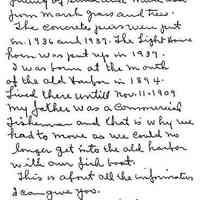 from marsh grass and trees.
The concrete piers were put
in. 1936 and 1937. The Light House
horn was put up in 1937.
I was born at the mouth
of the old Harbor in 1894.
Lived there untill Nov. 11-1909
my father was a Commercial
fisherman and that is why we
had to move as we could no
longer get into the old harbor
with our fish boat.
This is about all the information
I can give you.